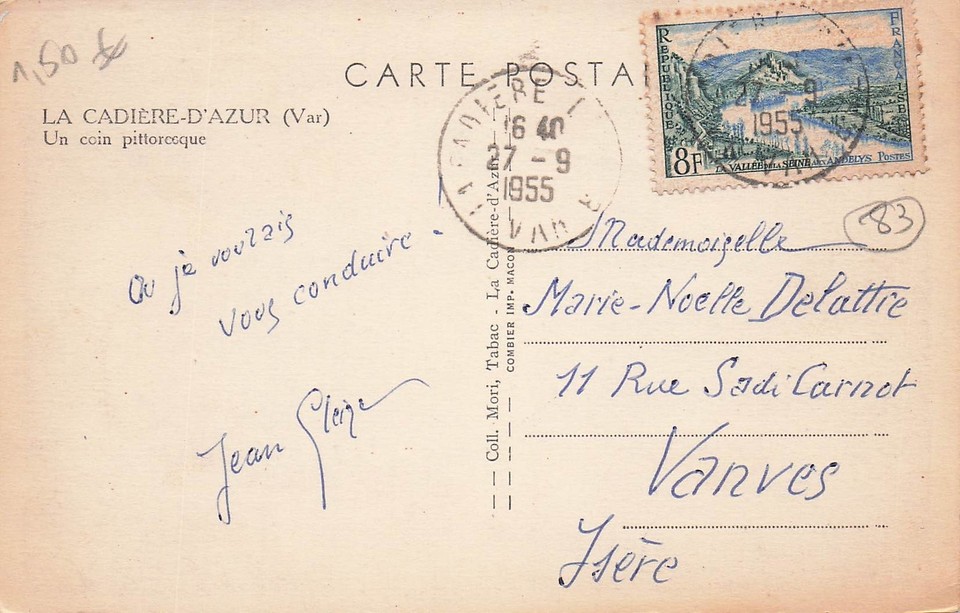 1,50
CARTE POSTA
LA CADIÈRE-D'AZUR (Var)
Un coin pittoresque
LA CADIERE
16 40
27 - 9
1955
VAR
REPUBLIQUE
FRANÇAISE
27 9
1955
VAR
8F
LA VALLÉE DE LA SEINE AUX ANDELYS POSTES
83
Où je voulais
vous conduire !
Jean Gleize
Coll. Mori, Tabac - La Cadière-d'Azur
COMBIER IMP. MACON
Mademoizelle
Marie-Noëlle Delattre
11 Rue Sadi Carnot
Vanves
Isère